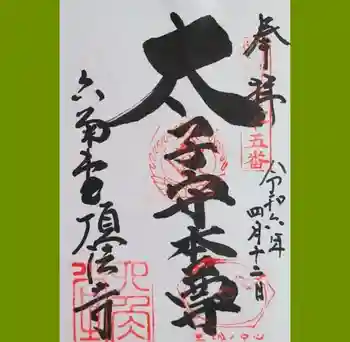 奉拝
五番
令和六年
四月十二日
太子守本尊
六角堂頂法寺